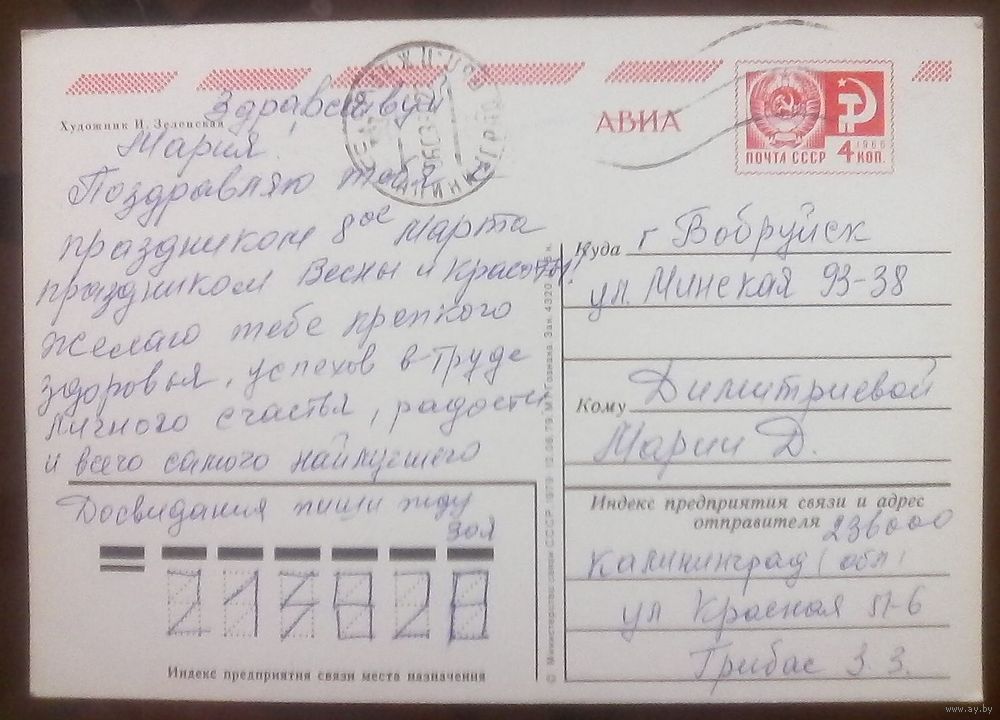 Художник И. Зеленская
Здравствуй
Мария
Поздравляю тебя
праздником 8ое Марта
праздником Весны и красоты!
желаю тебе крепкого
здоровья, успехов в труде
личного счастья, радости
и всего самого наилучшего
Досвидания пиши жду
Зоя
Индекс предприятия связи места назначения
© Министерство связи СССР. 1979
АВИА
ПОЧТА СССР
1966
4 КОП.
Куда г Бобруйск
ул. Минская 93-38
Кому Димитриевой
Марии Д.
Индекс предприятия связи и адрес
отправителя 236000
Калининград (обл)
ул Красная
Грибас З. З.
www.ay.by